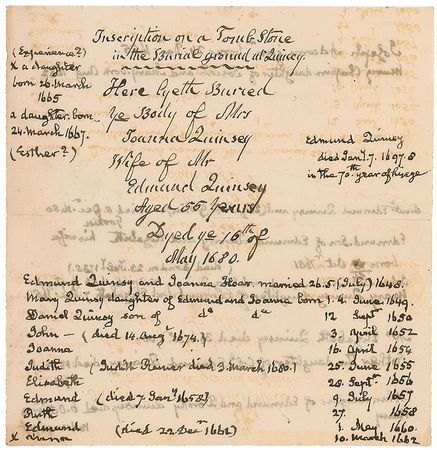 Inscription on a Tomb Stone
in the Burial ground at Quincy.
Here Lyeth Buried
ye Body of Mrs
Joanna Quinsey
Wife of Mr
Edmund Quinsey
Aged 55 Years
Dyed ye 16th of
May 1680.
(Experience?)
x a daughter
born 26. March
1665
a daughter. born.
26. March 1667.
(Esther?)
Edmund Quinsy
died Jany. 7. 1697.8
in the 70th year of his age
Edmund Quinsy and Joanna Hoar. married 26.5 (July) 1648.
Mary Quinsy daughter of Edmund and Joanna born. 1. 4. June. 1649.
Daniel Quinsy son of do do 12 Septr 1650
John — (died 14. Augt 1674.) 3. April 1652
Joanna 16. April 1654
Judith (Judith Rainer died 3. March 1680.) 25. June 1655
Elisabeth 28. Septr 1656
Edmund (died 7. Jany 1658) 9. July 1657
Ruth 27. 1658
Edmund (died 22. Decr 1662) 1. May 1660.
x 10. March 1662